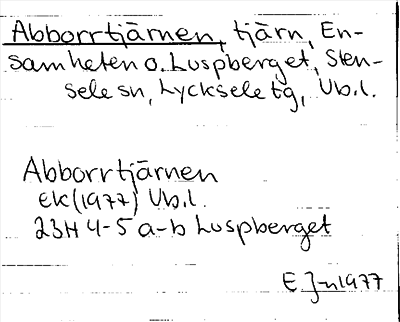 Abborrtjärnen, tjärn, En-
samheten o. Luspberget, Sten-
sele sn, Lycksele tg, Vb.l.
Abborrtjärnen
EK(1977) Vb.l.
23H 4-5 a-b Luspberget
E J-n 1977